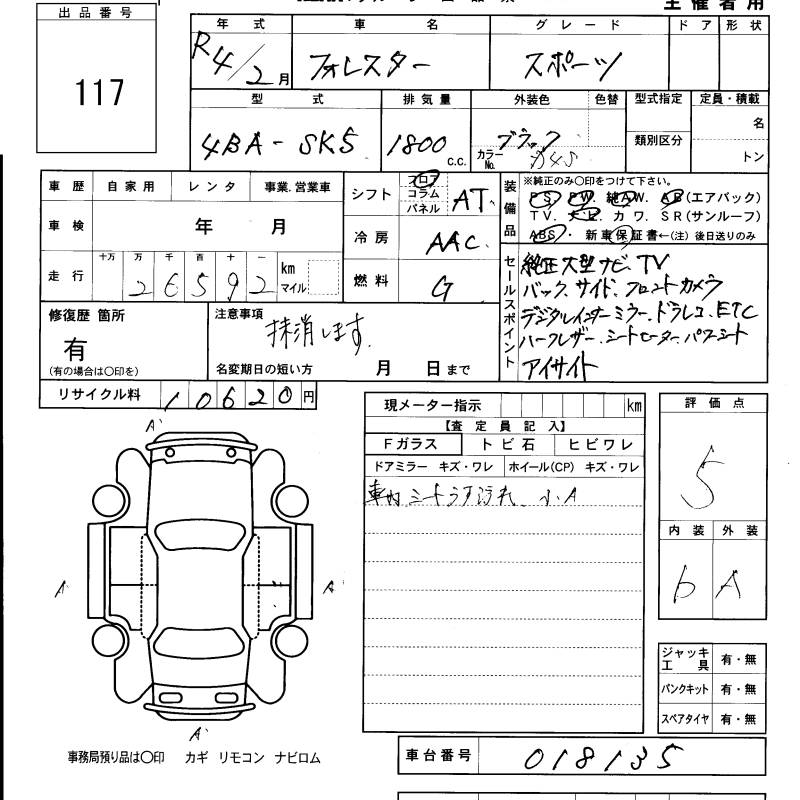 主催者用
出品番号
117
年式 車名 グレード ドア 形状
R4/2月 フォレスター スポーツ
型式 排気量 外装色 色替 型式指定 定員・積載
4BA-SK5 1800 c.c. ブラック カラーNo. D4S 類別区分 名
トン
車歴 自家用 レンタ 事業.営業車
車検 年 月
走行 十万 万 千 百 十 一
26592 km マイル
シフト フロア コラム パネル AT
冷房 AAC
燃料 G
装備品 ※純正のみ○印をつけて下さい。
PS. PW. 純AW. AB(エアバック)
TV. ナビ. カワ. SR(サンルーフ)
ABS・ 新車保証書←(注) 後日送りのみ
セールスポイント 純正大型ナビ、TV
バック、サイド、フロントカメラ
デジタルインナーミラー、ドラレコ、ETC
ハーフレザー、シートヒーター、パワーシート
アイサイト
修復歴 箇所
有
(有の場合は○印を)
注意事項
抹消します。
名変期日の短い方 月 日まで
リサイクル料 10620円
現メーター指示 km
【査定員記入】
Fガラス トビ石 ヒビワレ
ドアミラー キズ・ワレ ホイール(CP) キズ・ワレ
車内シートうす汚れ、小A
評価点
5
内装 外装
b A
A'
A' A'
A'
ジャッキ工具 有・無
パンクキット 有・無
スペアタイヤ 有・無
事務局預り品は○印 カギ リモコン ナビロム
車台番号 018135